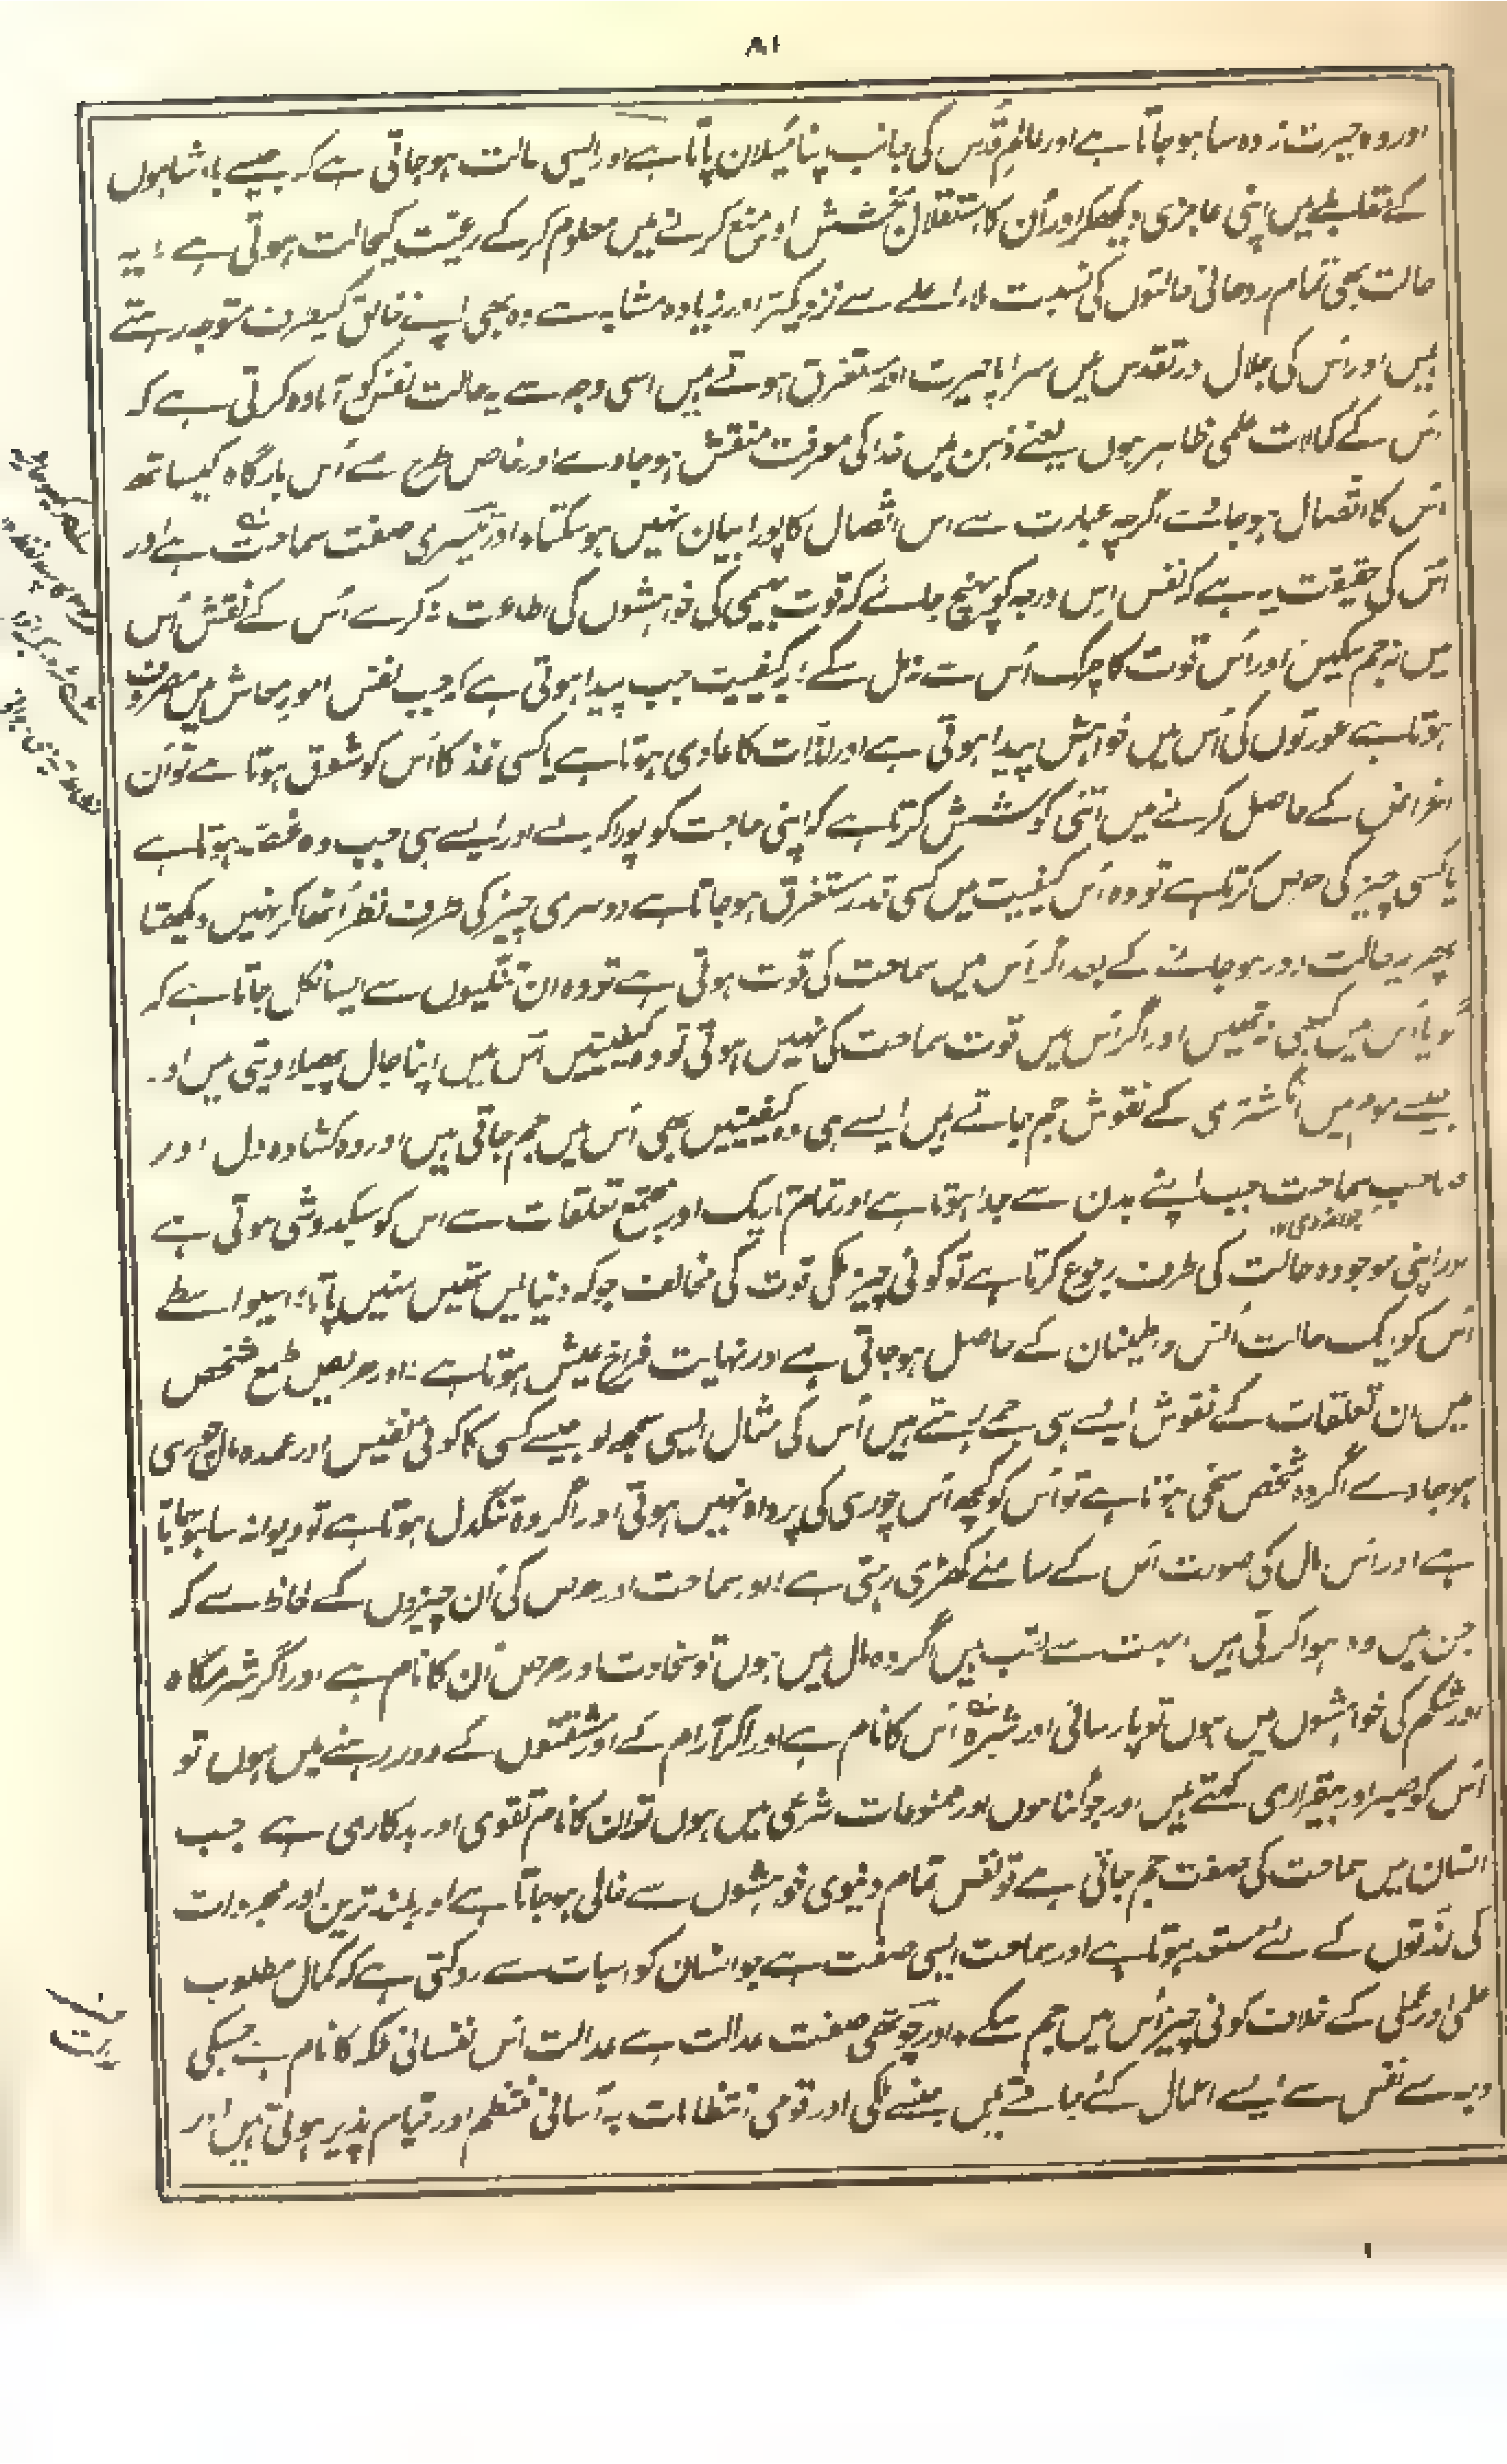 ۸۱
اور وہ حیرت زدہ سا ہو جاتا ہے اور عالمِ قُدس کی جانب اپنا میَلان پاتا ہے اور ایسی حالت ہو جاتی ہے کہ جیسے بادشاہوں
کے مقابلے میں اپنی عاجزی دیکھکر اور اُن کا استقلال بخشش اور منع کرنے میں معلوم کر کے رعیت کی حالت ہوتی ہے؛ یہ
حالت بھی تمام روحانی حالتوں کی نسبت ملاء اعلے سے نزدیکتر اور زیادہ مشابہ ہے وہ بھی اپنے خالق کیطرف متوجہ رہتے
ہیں اور اُس کی جلال اور تقدس میں سراپا حیرت اور مستغرق ہوتے ہیں اسی وجہ سے یہ حالت نفس کو آمادہ کرتی ہے کہ
اُس کے کمالات علمی ظاہر ہوں یعنے ذہن میں خدا کی معرفت منقش ہو جاوے اور خاص طرح سے اُس بارگاہ کیساتھ
اُس کا اتّصال ہو جائے اگرچہ عبارت سے اس اتّصال کا پورا بیان نہیں ہو سکتا۔ اور تیسری صفت سماحت ہے اور
اُس کی حقیقت یہ ہے کہ نفس اِس درجہ کو پہنچ جائے کہ قوت بہیمی کی خواہشوں کی اطاعت نہ کرے اُس کے نقش اُس
میں نہ جم سکیں اور اُس قوت کا چرک اُس سے نہ مل سکے؛ یہ کیفیت جب پیدا ہوتی ہے کہ جب نفس امورِ معاش میں مصروف
ہوتا ہے عورتوں کی اُس میں خواہش پیدا ہوتی ہے اور لذّات کا عادی ہوتا ہے یا کسی غذا کا اُس کو شوق ہوتا ہے تو اُن
اغراض کے حاصل کرنے میں اتنی کوشش کرتا ہے کہ اپنی حاجت کو پورا کر لے اور ایسے ہی جب وہ غصّہ ہوتا ہے
یا کسی چیز کی حرص کرتا ہے تو وہ اُس کیفیت میں کسی قدر مستغرق ہو جاتا ہے دوسری چیز کی طرف نظر اُٹھا کر نہیں دیکھتا
پھر یہ حالت دور ہو جانے کے بعد اگر اُس میں سماحت کی قوت ہوتی ہے تو وہ ان تنگیوں سے ایسا نکل جاتا ہے کہ
گویا اُس میں کبھی نہ تھیں اور اگر اُس میں قوت سماحت کی نہیں ہوتی تو وہ کیفیتیں اُس میں اپنا جال پھیلا دیتی ہیں اور
جیسے موم میں انگشتری کے نقوش جم جاتے ہیں ایسے ہی وہ کیفیتیں بھی اُس میں جم جاتی ہیں اور وہ کشادہ دل اور
صاحبِ سماحت جب اپنے بدن سے جدا ہوتا ہے اور تمام تاریک اور مجتمع تعلقات سے اس کو سبکدوشی ہوتی ہے
جوانمردی
اور اپنی موجودہ حالت کی طرف رجوع کرتا ہے تو کوئی چیز ملکی قوت کی مخالف جو کہ دنیا میں تھیں نہیں پاتا؛ اسیواسطے
اُس کو ایک حالت اُنس و اطمینان کے حاصل ہو جاتی ہے اور نہایت فراخ عیش ہوتا ہے؛ اور حریص طمع شخص
میں ان تعلقات کے نقوش ایسے ہی جمے رہتے ہیں اُس کی مثال ایسی سمجھ لو جیسے کسی کا کوئی نفیس اور عمدہ مال چوری
ہو جاوے اگر وہ شخص سخی ہوتا ہے تو اُس کو کچھ اُس چوری کی پرواہ نہیں ہوتی اور اگر وہ تنگدل ہوتا ہے تو دیوانہ سا ہو جاتا
ہے اور اُس مال کی صورت اُس کے سامنے کھڑی رہتی ہے؛ اور سماحت اور حرص کی اُن چیزوں کے لحاظ سے کہ
جن میں وہ ہوا کرتی ہیں بہت سے لقب ہیں اگر وہ مال میں ہوں تو سخاوت اور حرص اُن کا نام ہے اور اگر شرمگاہ
اور شکم کی خواہشوں میں ہوں تو پارسائی اور شرہ اُس کا نام ہے اور اگر آرام کے اور مشقتوں کے دور رہنے میں ہوں تو
اُس کو صبر اور بیقراری کہتے ہیں اور جو گناہوں اور ممنوعات شرعی میں ہوں تو ان کا نام تقوی اور بدکاری ہے جب
انسان میں سماحت کی صفت جم جاتی ہے تو نفس تمام دنیوی خواہشوں سے خالی ہو جاتا ہے اور بلند ترین اور مجردات
کی لذتوں کے لئے مستعد ہوتا ہے اور سماحت ایسی صفت ہے جو انسان کو اسبات سے روکتی ہے کہ کمال مطلوب
علمی اور عملی کے خلاف کوئی چیز اُس میں جم سکے۔ اور چوتھی صفت عدالت ہے عدالت اُس نفسانی ملکہ کا نام ہے جسکی
وجہ سے نفس سے ایسے اعمال کئے جاتے ہیں جنسے ملکی اور قومی انتظامات بہ آسانی منتظم اور قیام پذیر ہوتی ہیں اور